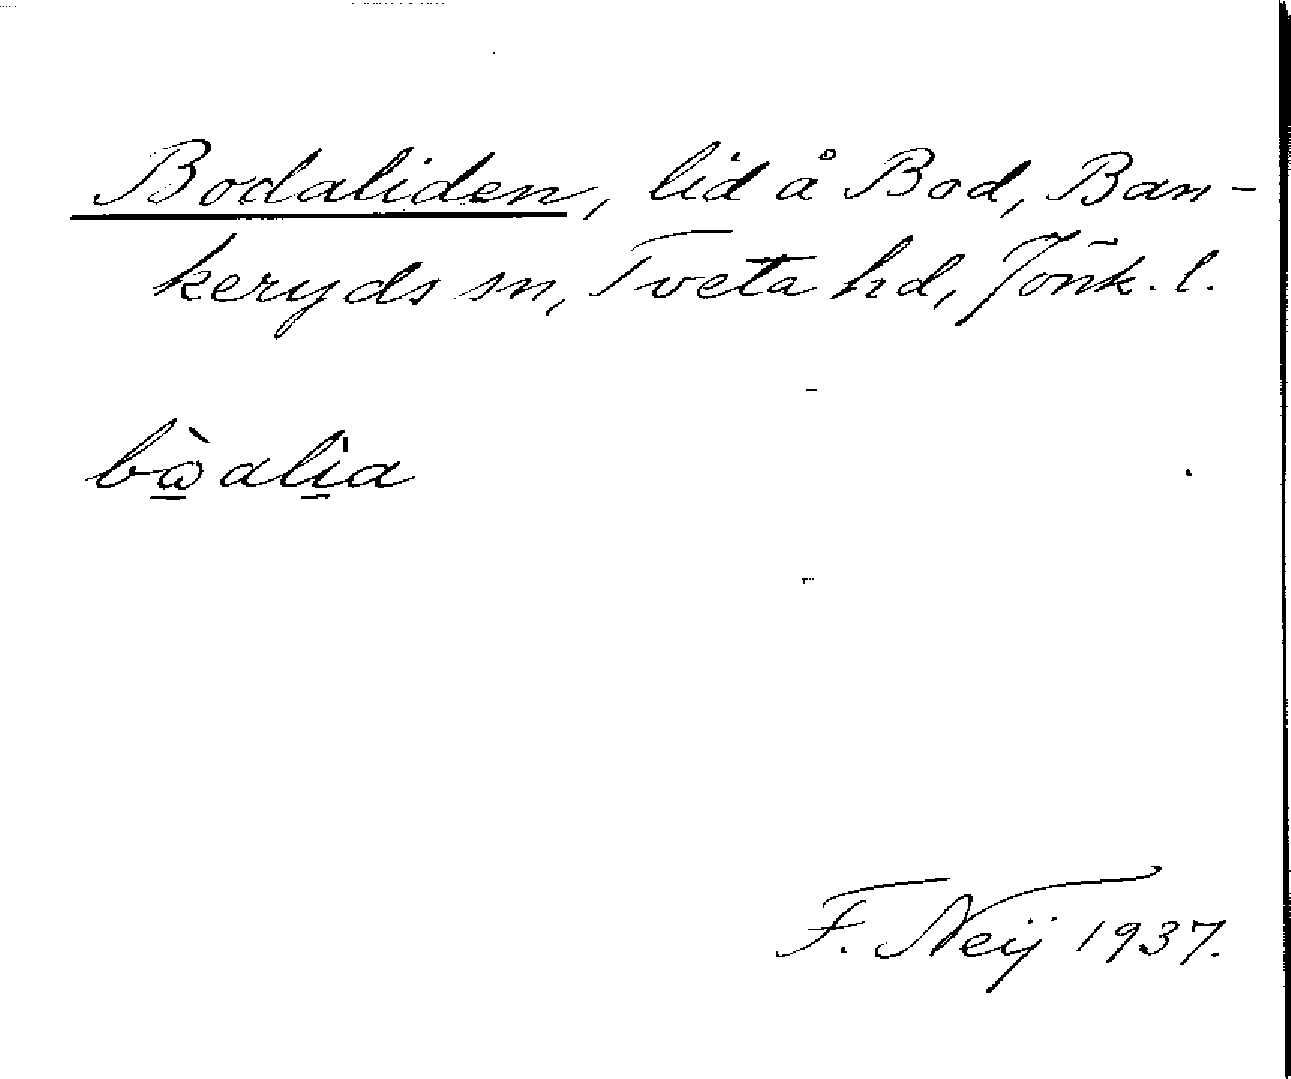 Bodaliden, lid å Bod, Ban-
keryds sn, Tveta hd, Jönk. l.
bὼ̱ali̱̍a
F. Neij 1937.